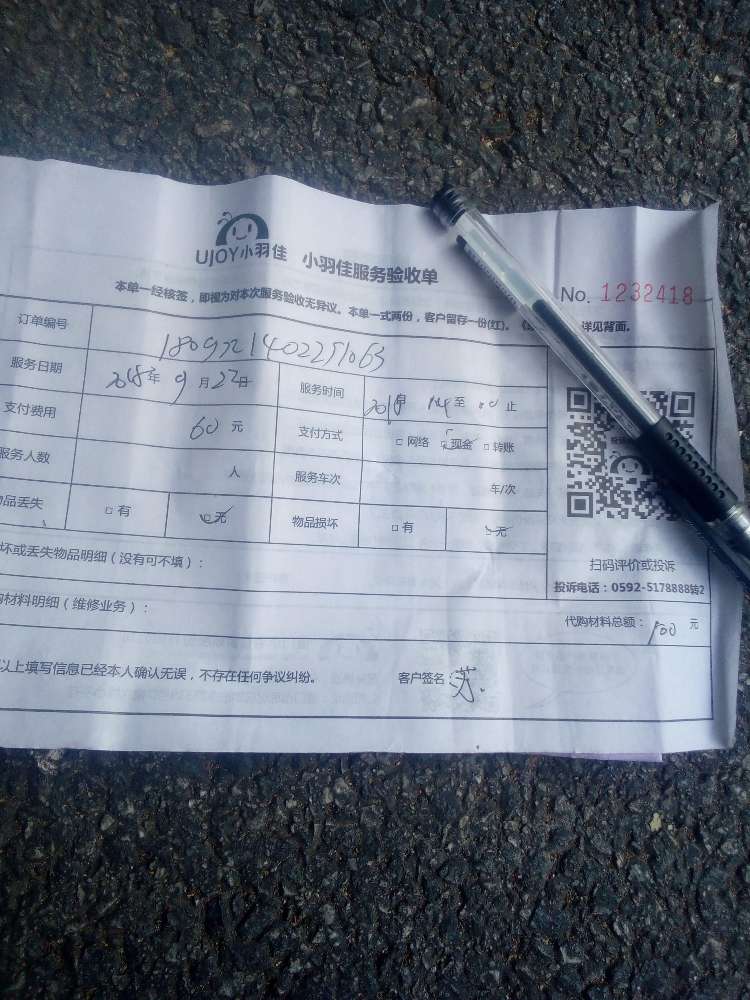 UJOY小羽佳 小羽佳服务验收单
No. 1232418
本单一经核签，即视为对本次服务验收无异议。本单一式两份，客户留存一份(红)。
详见背面。
订单编号
服务日期 2018年 9月22日 服务时间 至 止
支付费用 60元 支付方式 □网络 现金 □转账
服务人数 人 服务车次 车/次
品丢失 □有 无 物品损坏 □有 无
扫码评价或投诉
投诉电话：0592-5178888转2
坏或丢失物品明细（没有可不填）：
材料明细（维修业务）：
代购材料总额：100 元
以上填写信息已经本人确认无误，不存在任何争议纠纷。 客户签名 苏